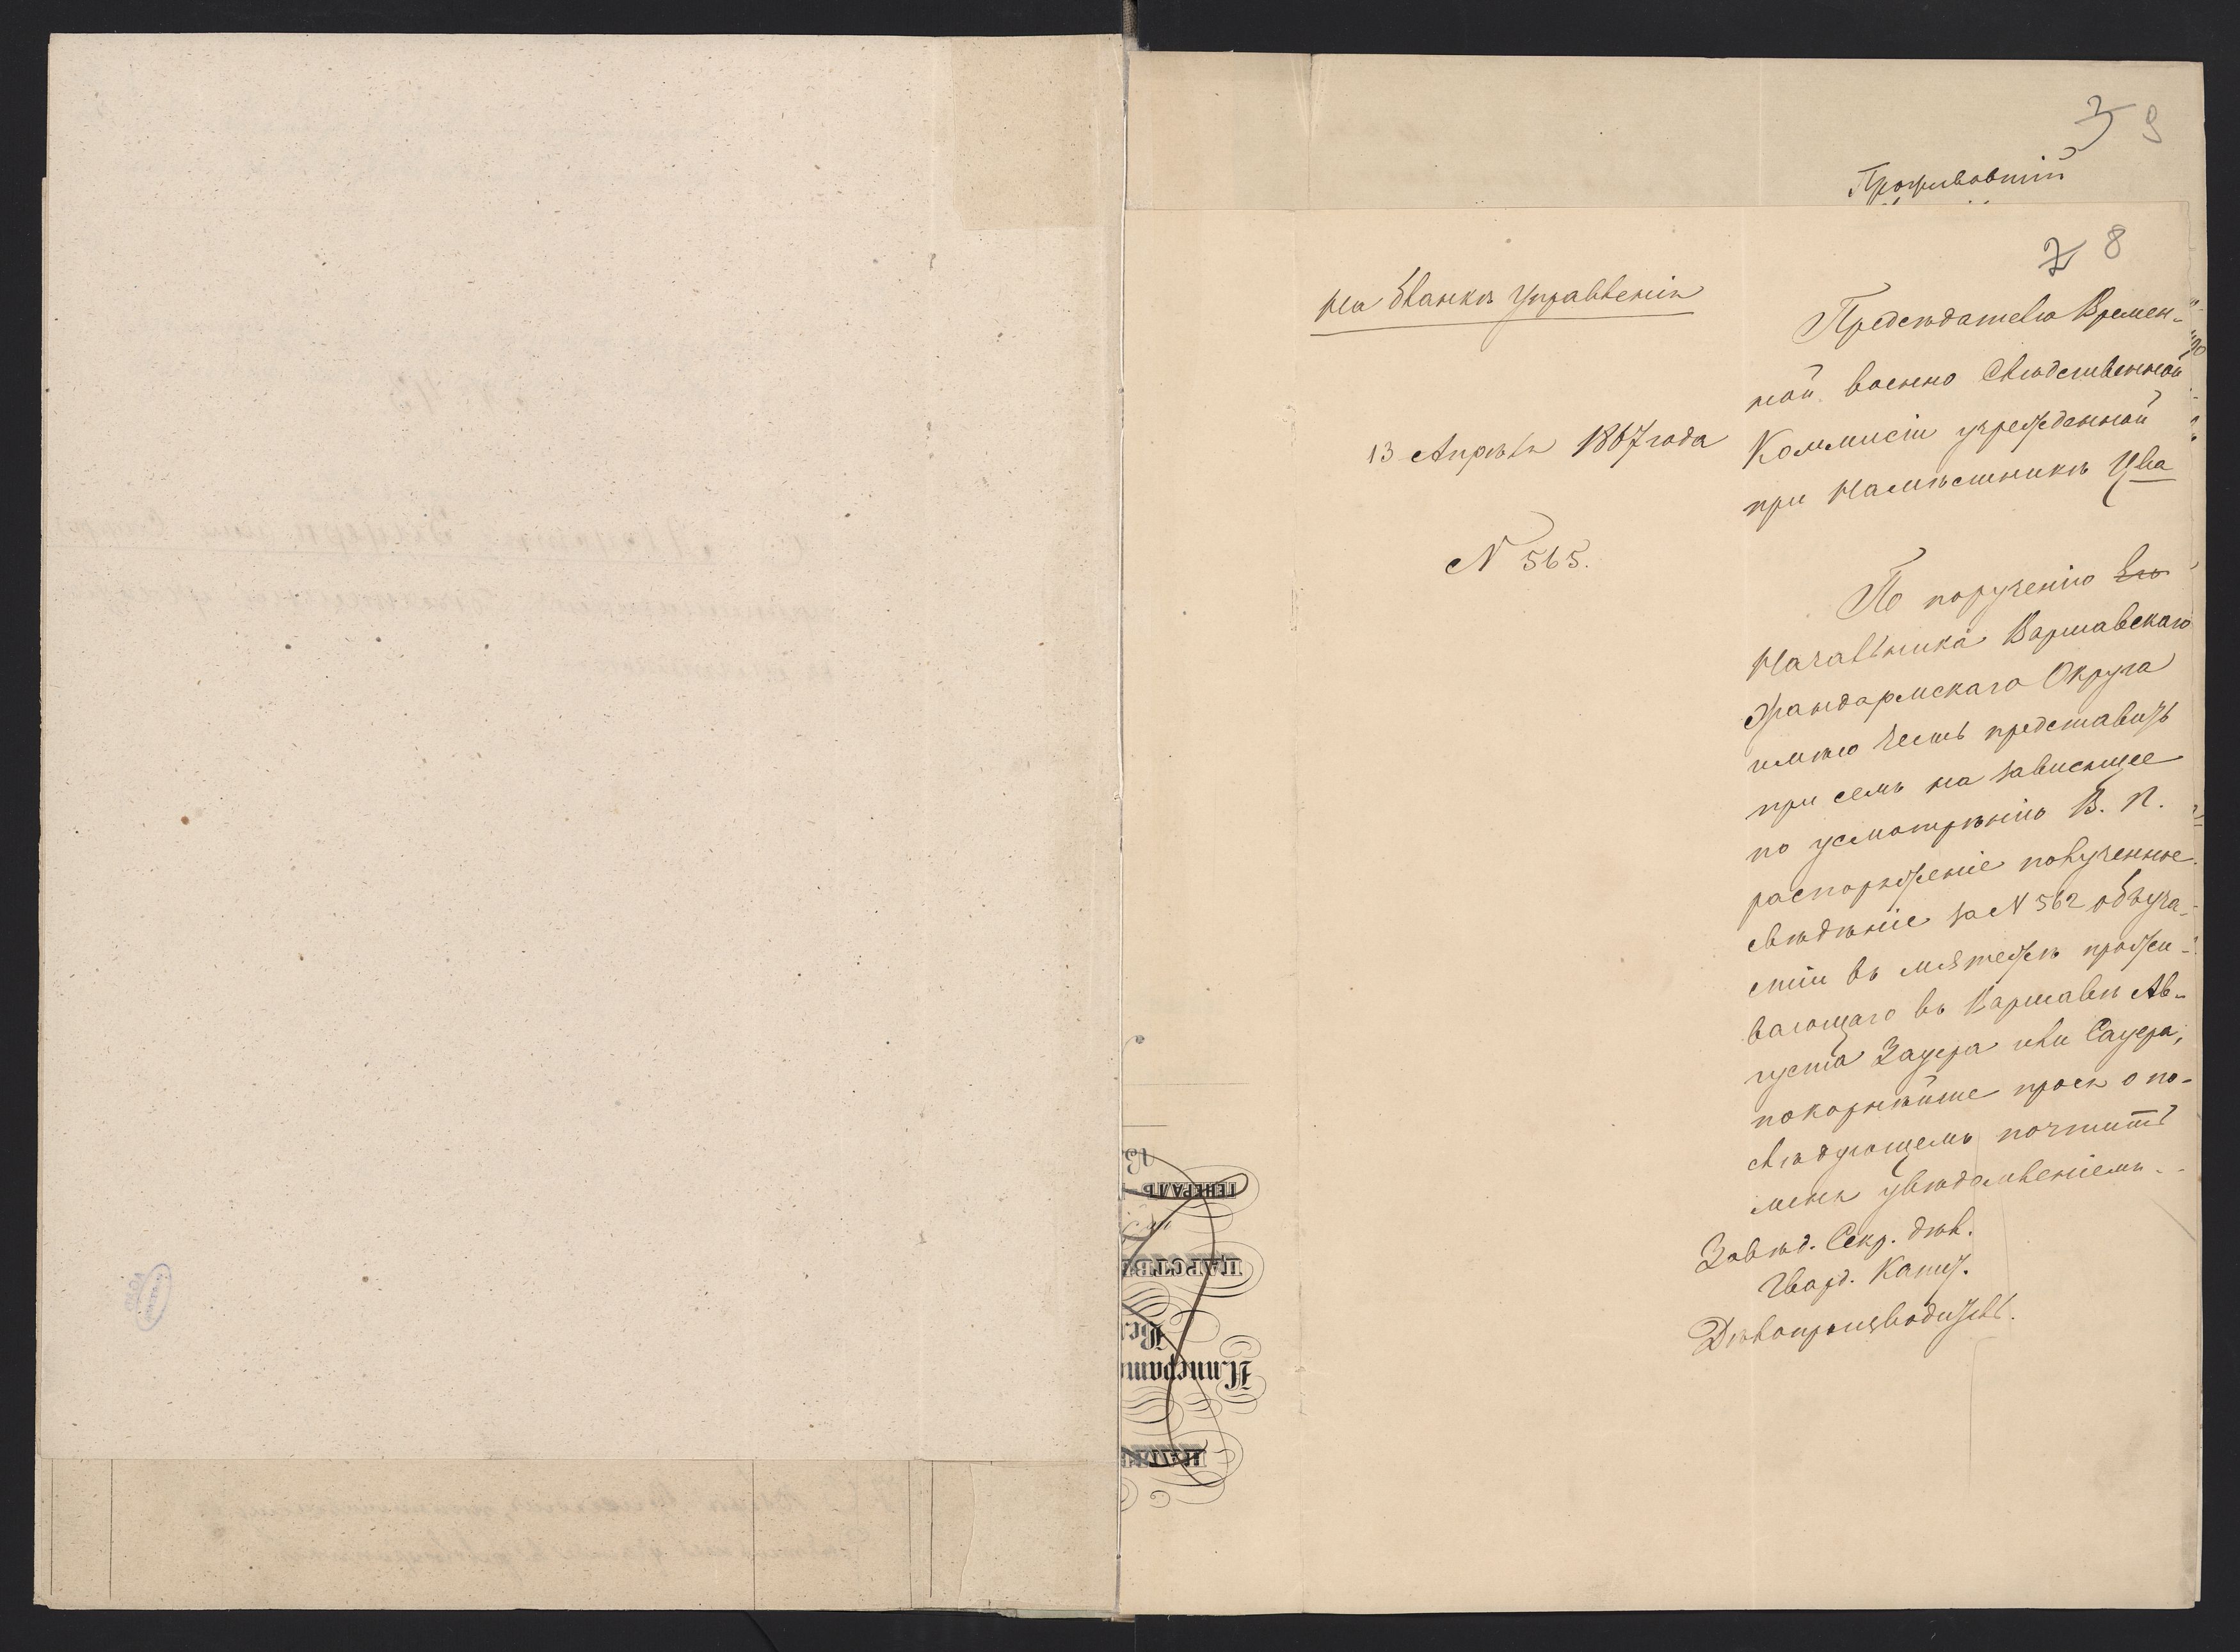 3 9
Проживавшій
7 8
На бланкѣ Управленія
Предсѣдателю Времен-
ной военно Слѣдственной
Коммисіи учрежденной
при Намѣстникѣ Ц_ва
13 Апрѣля 1867 года
N 565.
По порученію Его
Начальника Варшавскаго
Жандармскаго Округа
имѣю честь представить
при семъ на зависящее
по усмотрѣнію В. П.
распоряженіе полученное
свѣдѣніе за N 562 объ уча-
стіи въ мятежѣ прожи-
вающаго въ Варшавѣ Ав-
густа Зауера или Сауера,
покорнѣйше прося о по-
слѣдующемъ почтить
меня увѣдомленіемъ.
Завѣд. Секр. дѣл.
Гвард. Капит.
Дѣлопроизводитель.
ГЕНЕРАЛЪ
ЦАРСТВѢ
Вел
Императо